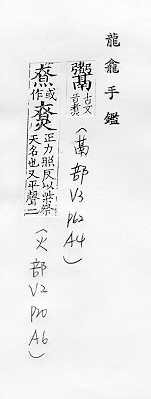 龍龕手鑑
古文
（鬲部V3P62A4）
或作
正力照反以柴祭
天名也又平聲二
（火部V2P20A6）